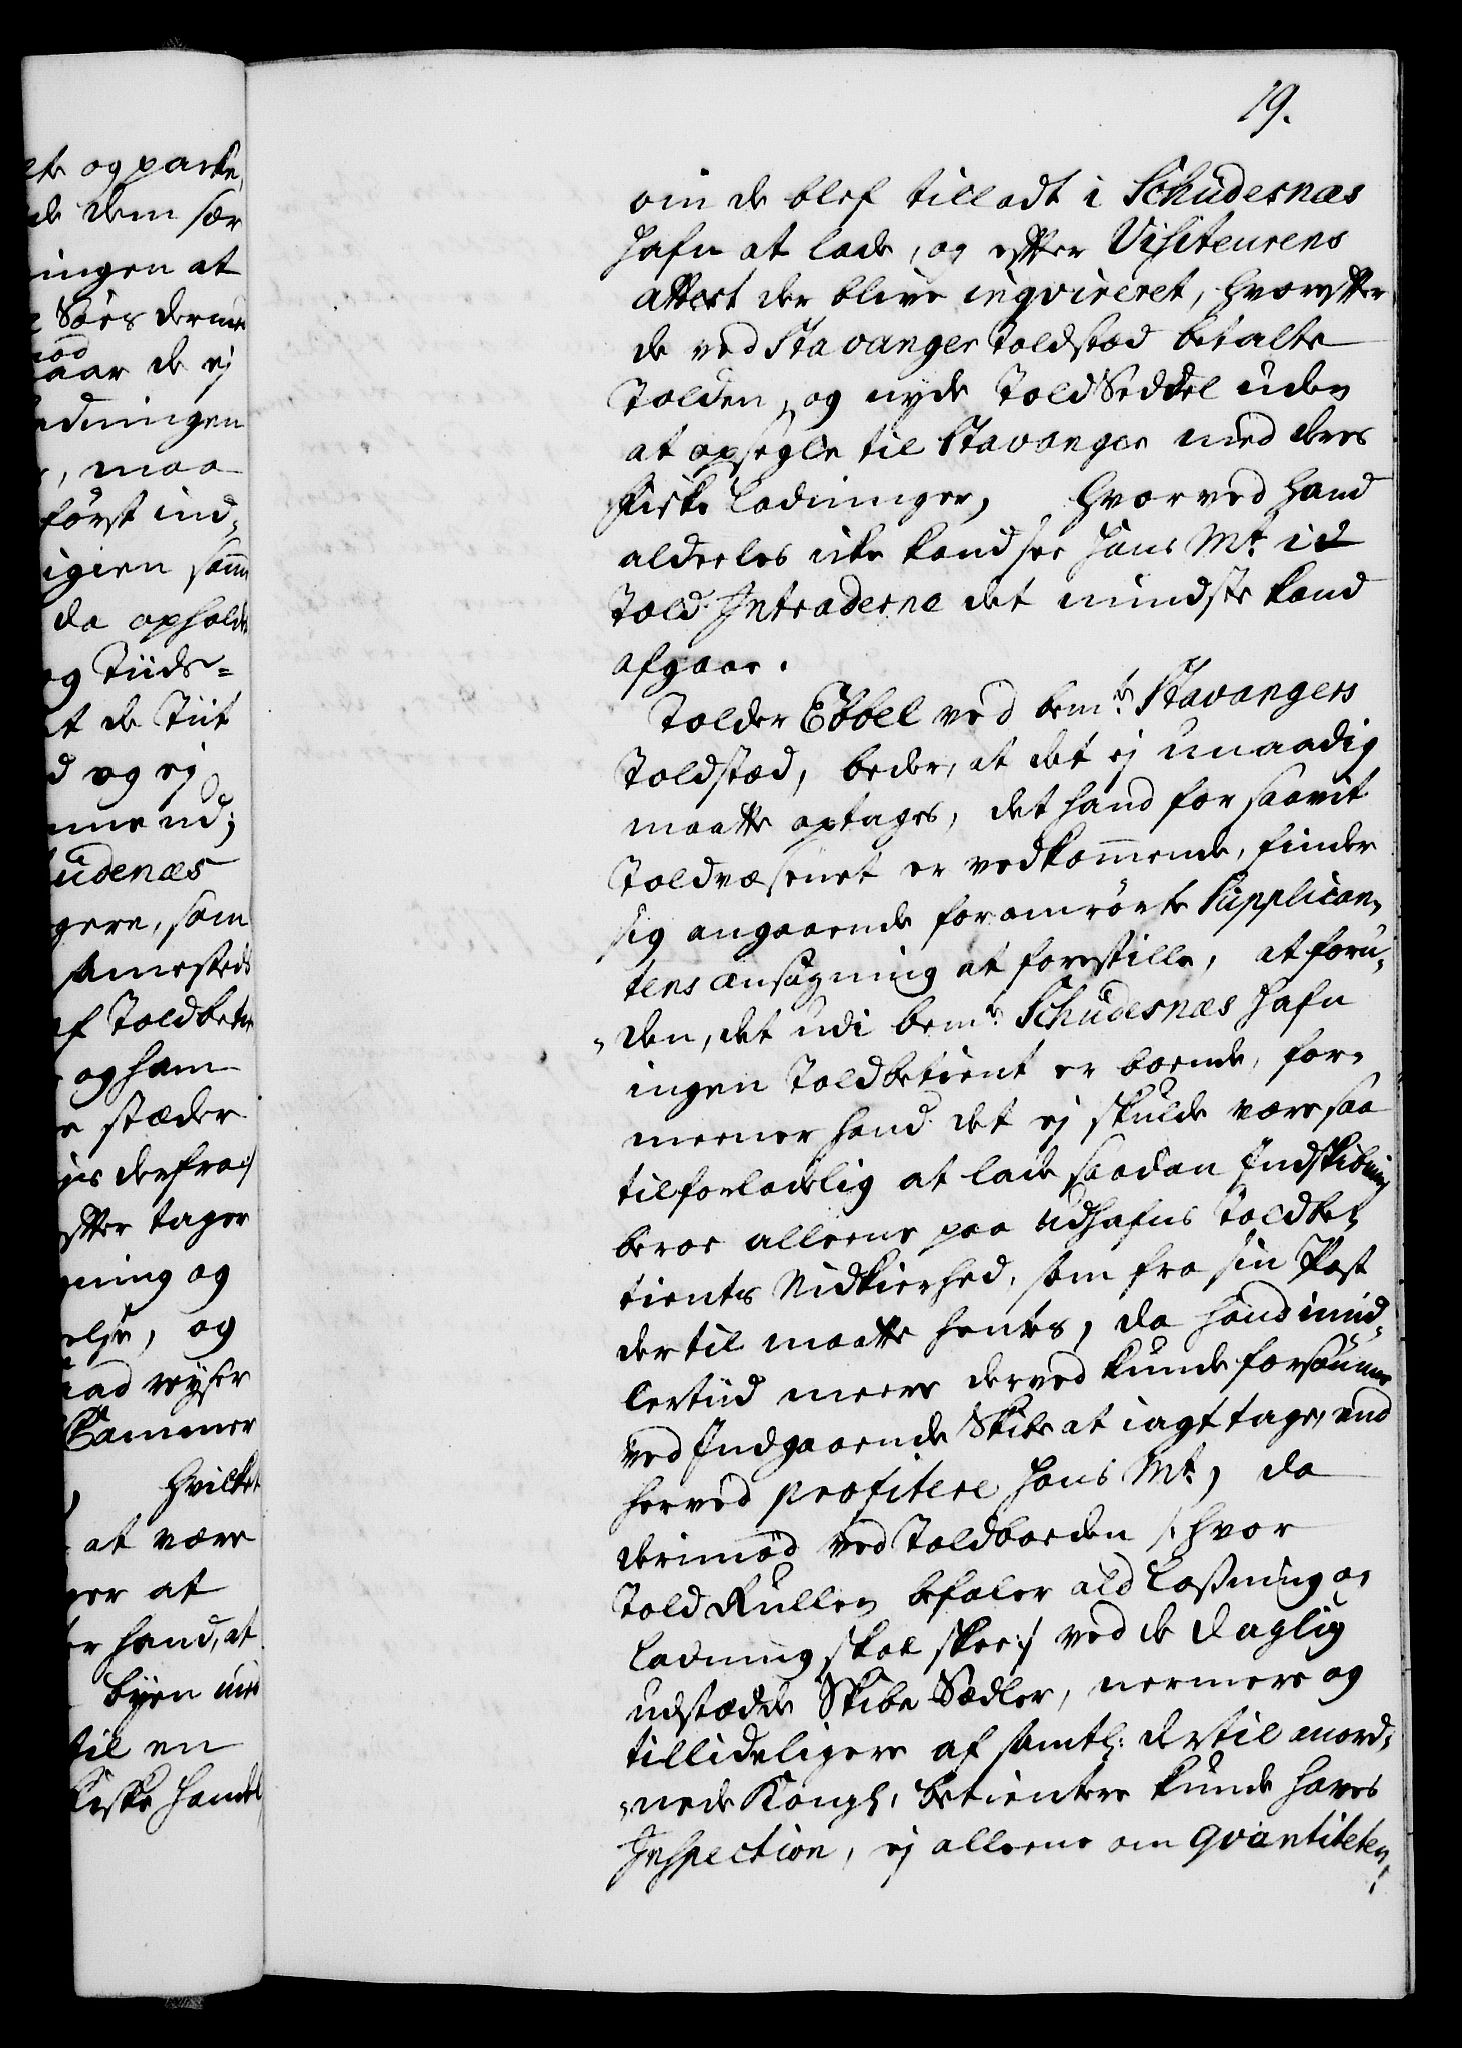 19.
om de blef tilladt i Schudesnæs
Hafn at lade, og efter Visiteurens
attest der blive inqvireret, hvorefter
de ved Stavanger Toldstæd betalte
Tolden, og nyde Told Seddel uden
at opsegle til Stavanger med deres
Fiske Ladninger, hvorved hand
aldeeles icke kand see Hans Mt. i
Told Intraderne det mindste kand
afgaae.
Tolder Ebbel ved bemte Stavangers
Toldstæd, beder, at det ej unaadig
maatte optages, det hand for saavit
Toldvæsenet er vedkommende, finder
sig angaaende foromrörte Supplican,
tens ansögning at forestille, at foru,
den, det udi bemte Schudesnæs Hafn
ingen Toldbetient er boende, for,
meener hand det ej skulde være saa
tilforladelig at lade saadan Indskibning
beroe alleene paa Udhafns Toldbe,
tients Nidkierhed, som fra sin Post
dertil maatte hentes, da hand imid,
lertiid meere derved kunde forsømme
ved Indgaaende Skibe at iagttage, end
herved profitere Hans Mt, da
derimod ved Toldboeden /: hvor
Told Rullen befaler ald Lossning og
Ladning skal skee :/ ved de daglig
udstædde Skibs Sedler, nermere og
tillideligere af samtl: dertil anord,
nede Kongl. betientere kunde haves
Inspection, ej alleene om qvantiteten,
ete og parke,
de dem sær
ningen at
Söes derm
aar de ej
adningen
, maa
först ind,
igien
da ophold
og Tiids=
t de Tiit
d og ej
udenæs
gere, som
samesteds
af Toldbetie
og ham
stæder
derfra:/
efter tager
ning og
else, og
reyser
Cammer
hvilket
at være
er at
er hand, at
byen
til en
Fiske Handel